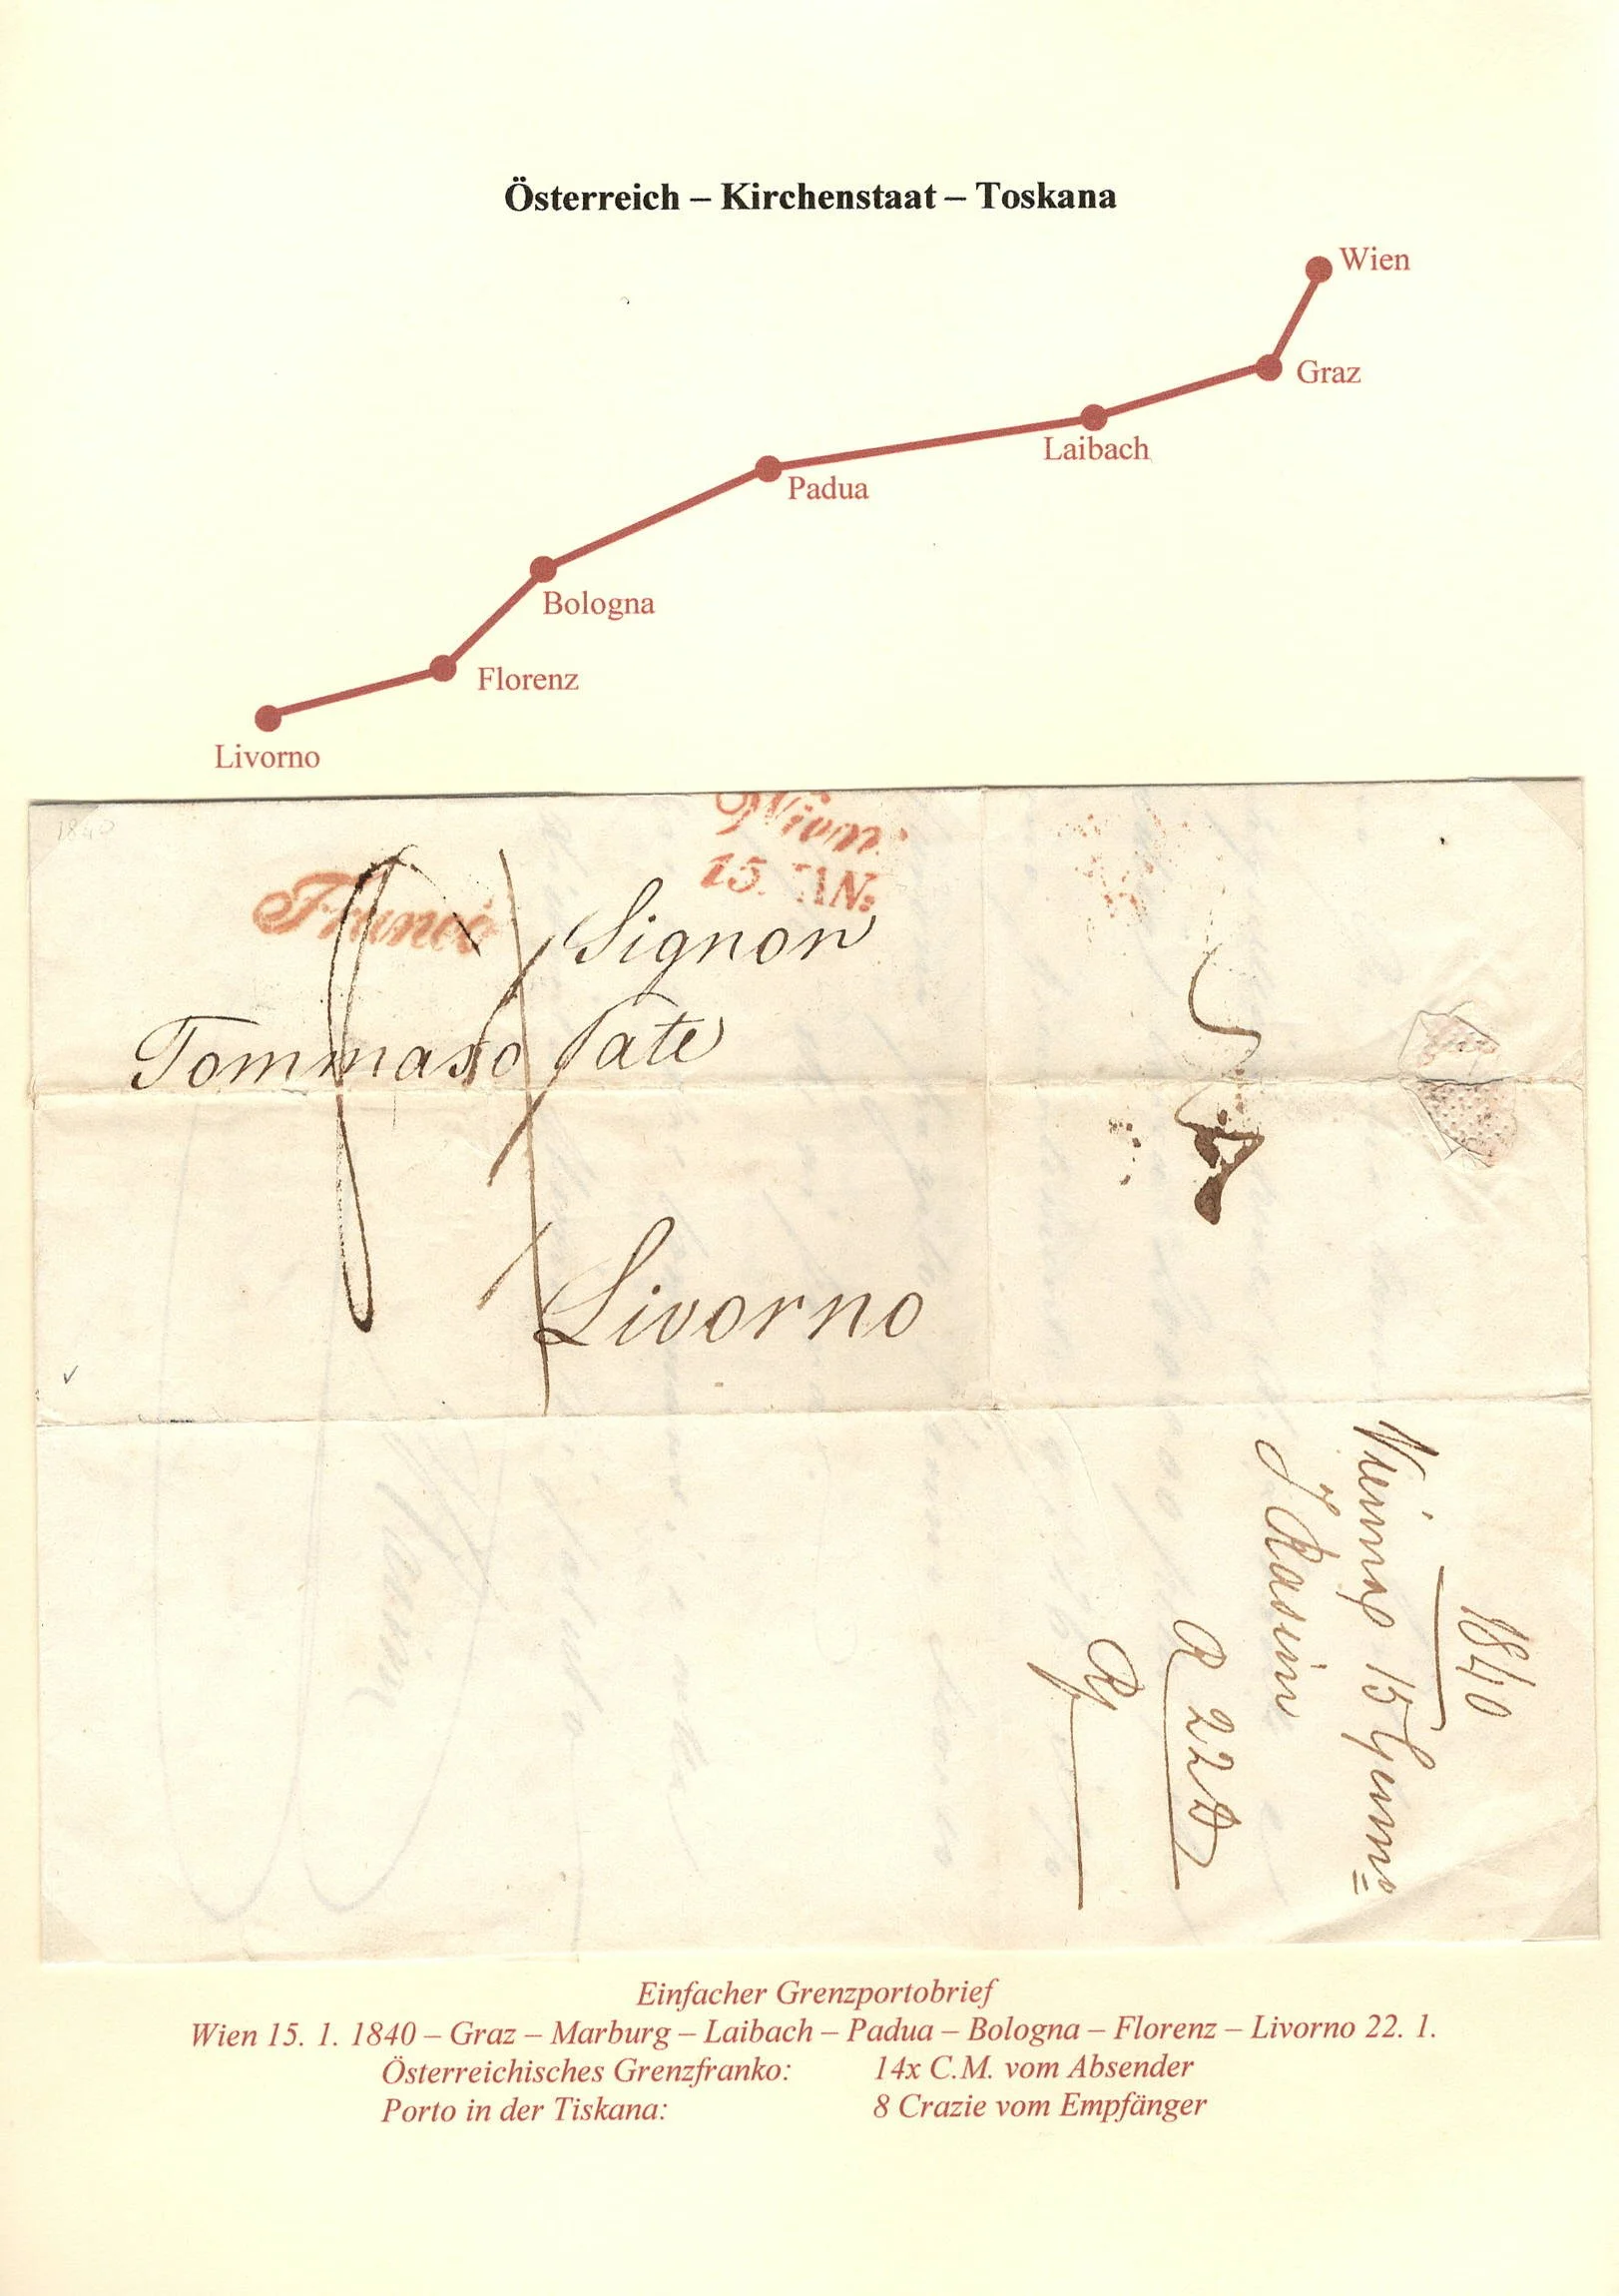 Österreich – Kirchenstaat – Toskana
Wien
Graz
Laibach
Padua
Bologna
Florenz
Livorno
1840
Wien
15. JAN:
Franco
Signor
Tommaso Pate
Livorno
1840
Vienna 15 Genn
R 22 D
Einfacher Grenzportobrief
Wien 15. 1. 1840 – Graz – Marburg – Laibach – Padua – Bologna – Florenz – Livorno 22. 1.
Österreichisches Grenzfranko: 14x C.M. vom Absender
Porto in der Tiskana: 8 Crazie vom Empfänger